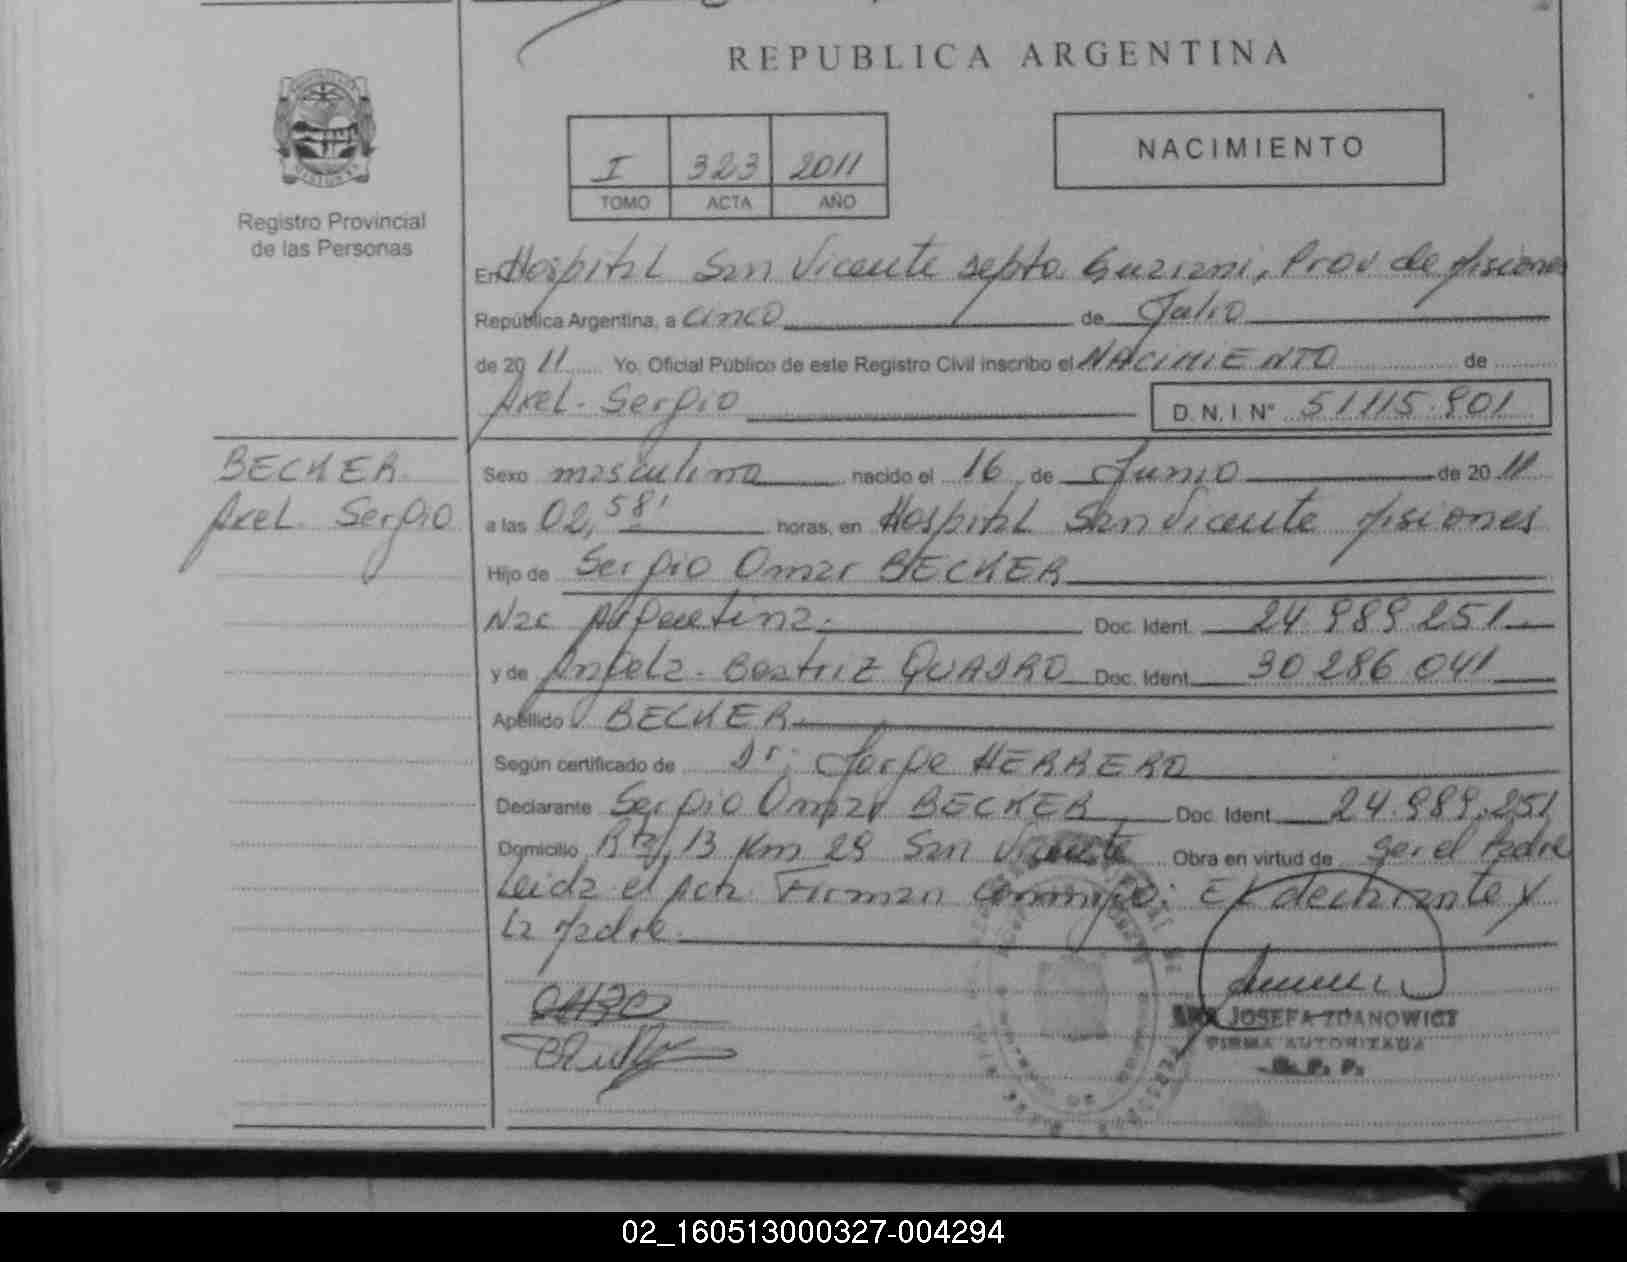 REPUBLICA ARGENTINA
I 323 2011
TOMO ACTA AÑO
NACIMIENTO
Registro Provincial
de las Personas
En Hospital San Vicente Depto. Guarani, Prov de Misiones
República Argentina, a cinco de Julio
de 2011 Yo, Oficial Público de este Registro Civil inscribo el NACIMIENTO de
Axel. Sergio D.N.I. N° 51.115.901
BECKER
Axel. Sergio
Sexo masculino nacido el 16 de Junio de 2011
a las 02,58' horas, en Hospital San Vicente Misiones
Hijo de Sergio Omar BECKER
Nac Argentina. Doc. Ident. 24.989.251
y de Angela. Beatriz QUADRO Doc. Ident. 30.286.041
Apellido BECKER
Según certificado de Dr; Jorge HERRERO
Declarante Sergio Omar BECKER Doc. Ident. 24.989.251
Domicilio Rta, 13 Km 29 San Vicente Obra en virtud de ser el Padre
Leida el Acta Firman conmigo: El declarante y
la Madre.
JOSEFA ZDANOWICZ
FIRMA AUTORIZADA
R. P. P.
02_160513000327-004294